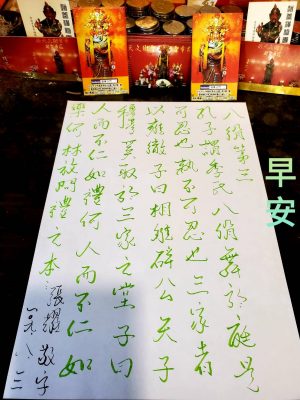 八佾第三
孔子謂季氏八佾舞於庭是
可忍也孰不可忍也三家者
以雍徹子曰相維辟公天子
穆穆奚取於三家之堂子曰
人而不仁如禮何人而不仁如
樂何林放問禮之本 張耀敬字
早安